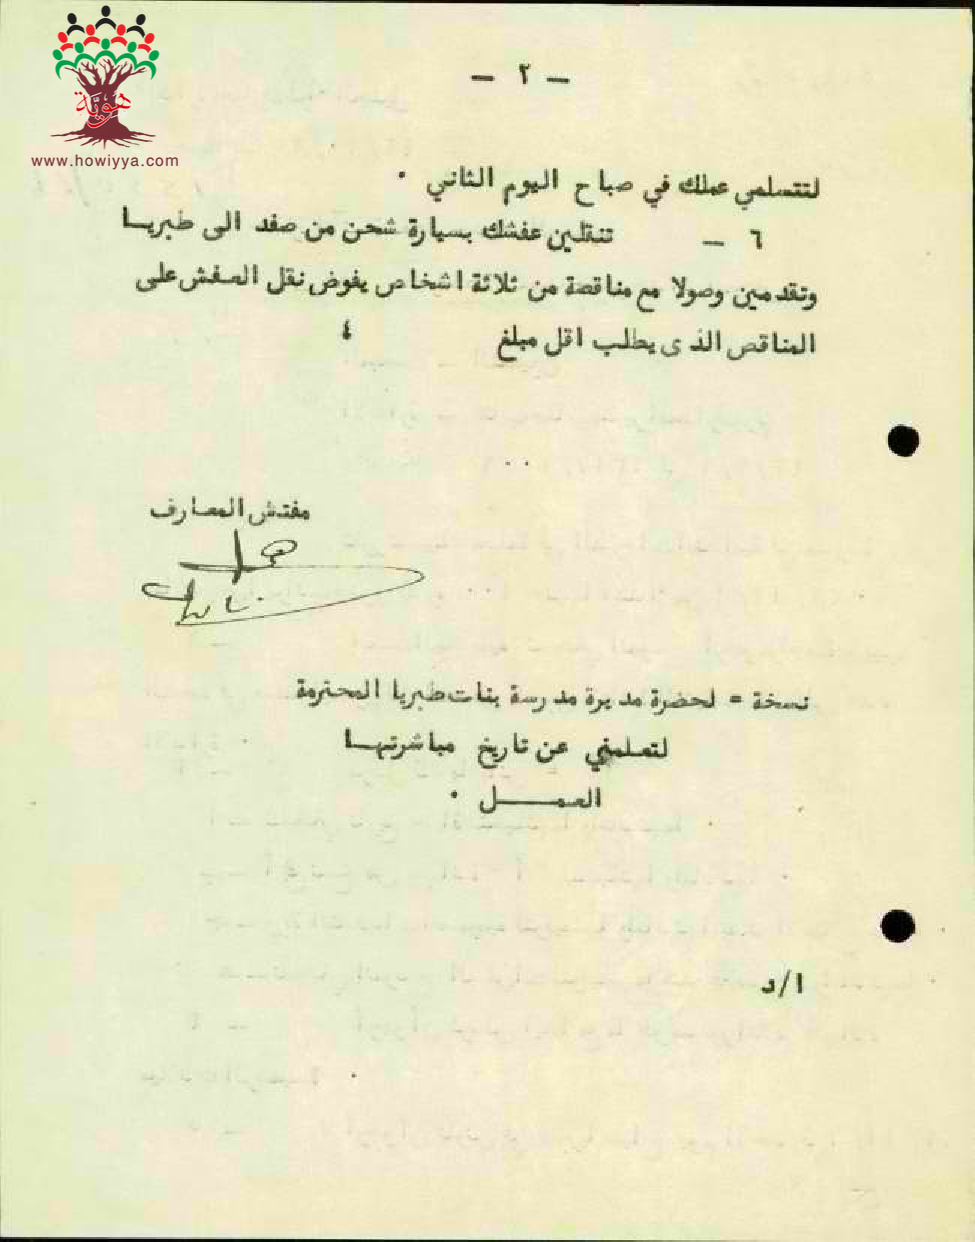 هويّة
www.howiyya.com
— ٢ —
لتتسلمي عملك في صباح اليوم الثاني ٠
٦ — تنقلين عفشك بسيارة شحن من صفد الى طبريـا
وتقدمين وصولا مع مناقصة من ثلاثة اشخاص يفوض نقل العفش على
المناقص الذى يطلب اقل مبلغ ٤
مفتش المعارف
نسخة = لحضرة مديرة مدرسة بنات طبريا المحترمة
لتعلمني عن تاريخ مباشرتهـا
العمـــل ٠
ا/د